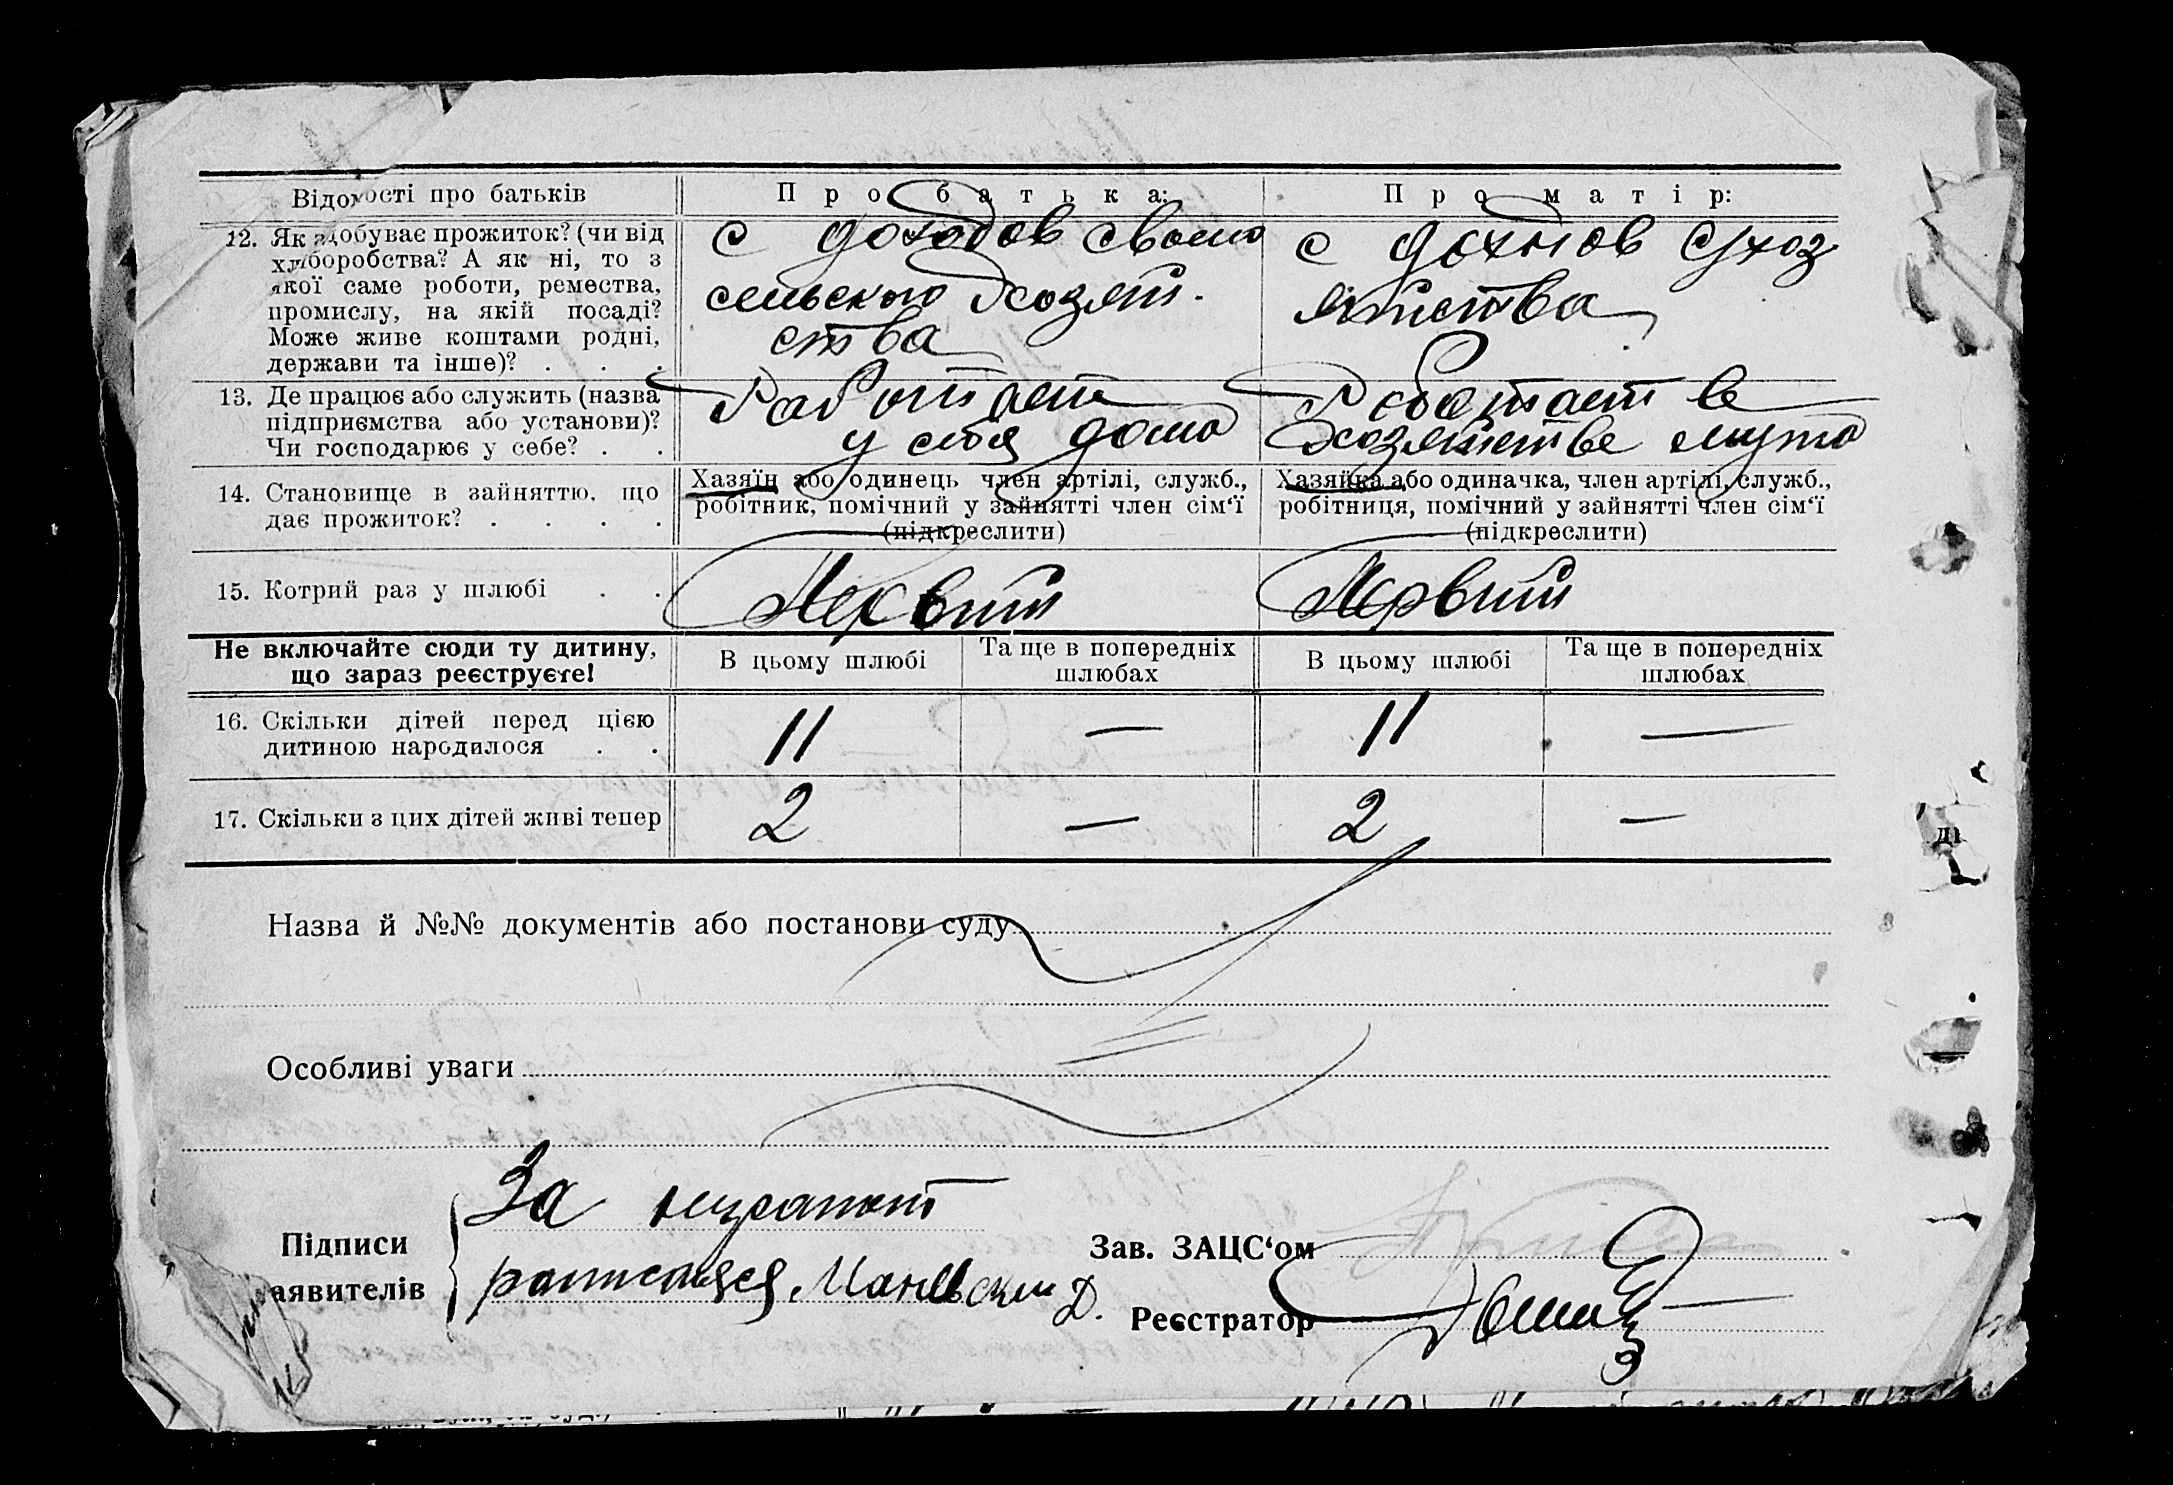 Відомості про батьків
П р о б а т ь к а:
П р о м а т і р:
12. Як здобуває прожиток? (чи від
хліборобства? А як ні, то з
якої саме роботи, ремества,
промислу, на якій посаді?
Може живе коштами родні,
держави та інше)? . . .
с доходов своего
сельского хозяй-
ства
с доходов с/хоз
яйства
13. Де працює або служить (назва
підприємства або установи)?
Чи господарює у себе? . .
Работает
у себя дома
Работает в
хозяйстве мужа
14. Становище в зайняттю, що
дає прожиток? . . . .
Хазяїн або одинець член артілі, служб.,
робітник, помічний у зайнятті член сім‘ї
(підкреслити)
Хазяйка або одиначка, член артілі, служб.,
робітниця, помічний у зайнятті член сім‘ї
(підкреслити)
15. Котрий раз у шлюбі . .
Первый
Первый
Не включайте сюди ту дитину,
що зараз реєструєте!
В цьому шлюбі
Та ще в попередніх
шлюбах
В цьому шлюбі
Та ще в попередніх
шлюбах
16. Скільки дітей перед цією
дитиною народилося . .
11 — 11 —
17. Скільки з цих дітей живі тепер
2 — 2 —
Назва й №№ документів або постанови суду
Особливі уваги
Підписи
аявителів
За неграмот
расписался Маневский Д.
Зав. ЗАЦС‘ом
Реєстратор